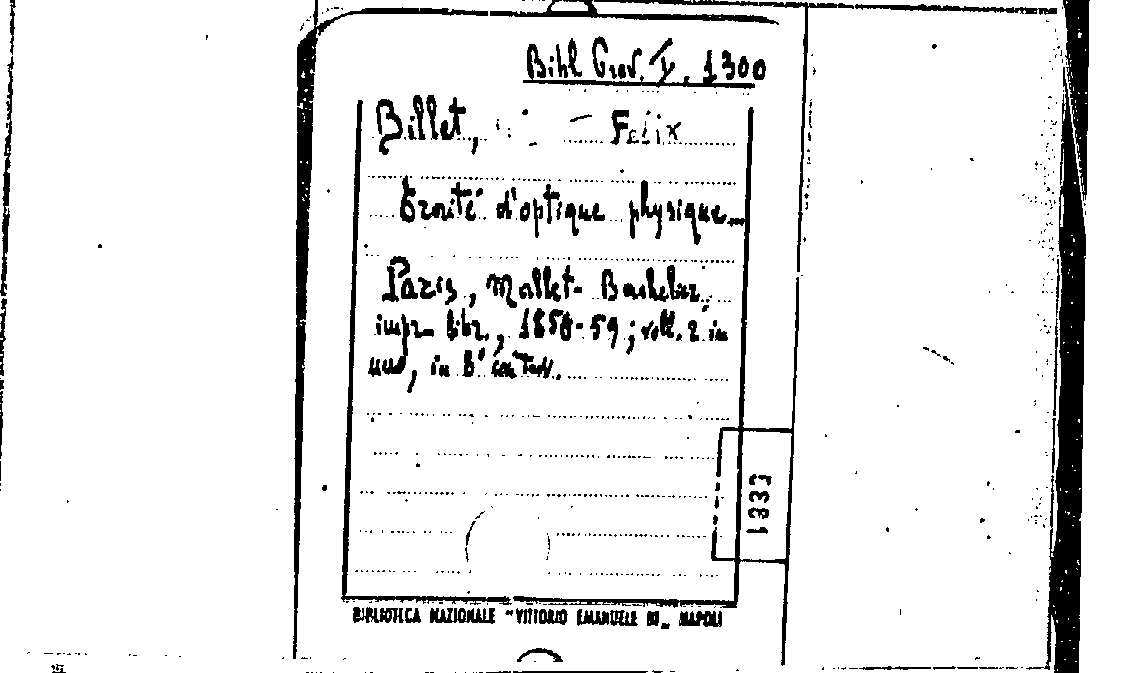 Bibl Prov. V. 1300
Billet, Felix
Traité d'optique physique...
Paris, Mallet-Bachelier,
impr-libr., 1858-59; voll. 2 in
uno, in 8° con tav.
5381
BIBLIOTECA NAZIONALE "VITTORIO EMANUELE III„ NAPOLI